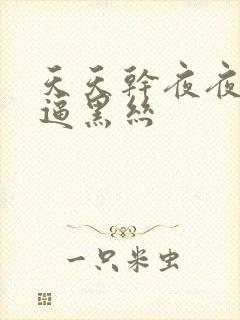 天天幹夜夜
逼黑絲
一只米虫